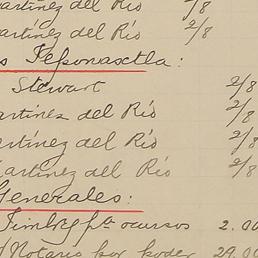 artínez del Río 2/8
artínez del Río 2/8
s Teponaxtla:
Stewart 2/8
artínez del Río 2/8
artínez del Río 2/8
artínez del Río 2/8
Generales:
Timbres pa ocursos 2.00
Notario por poder 29.00